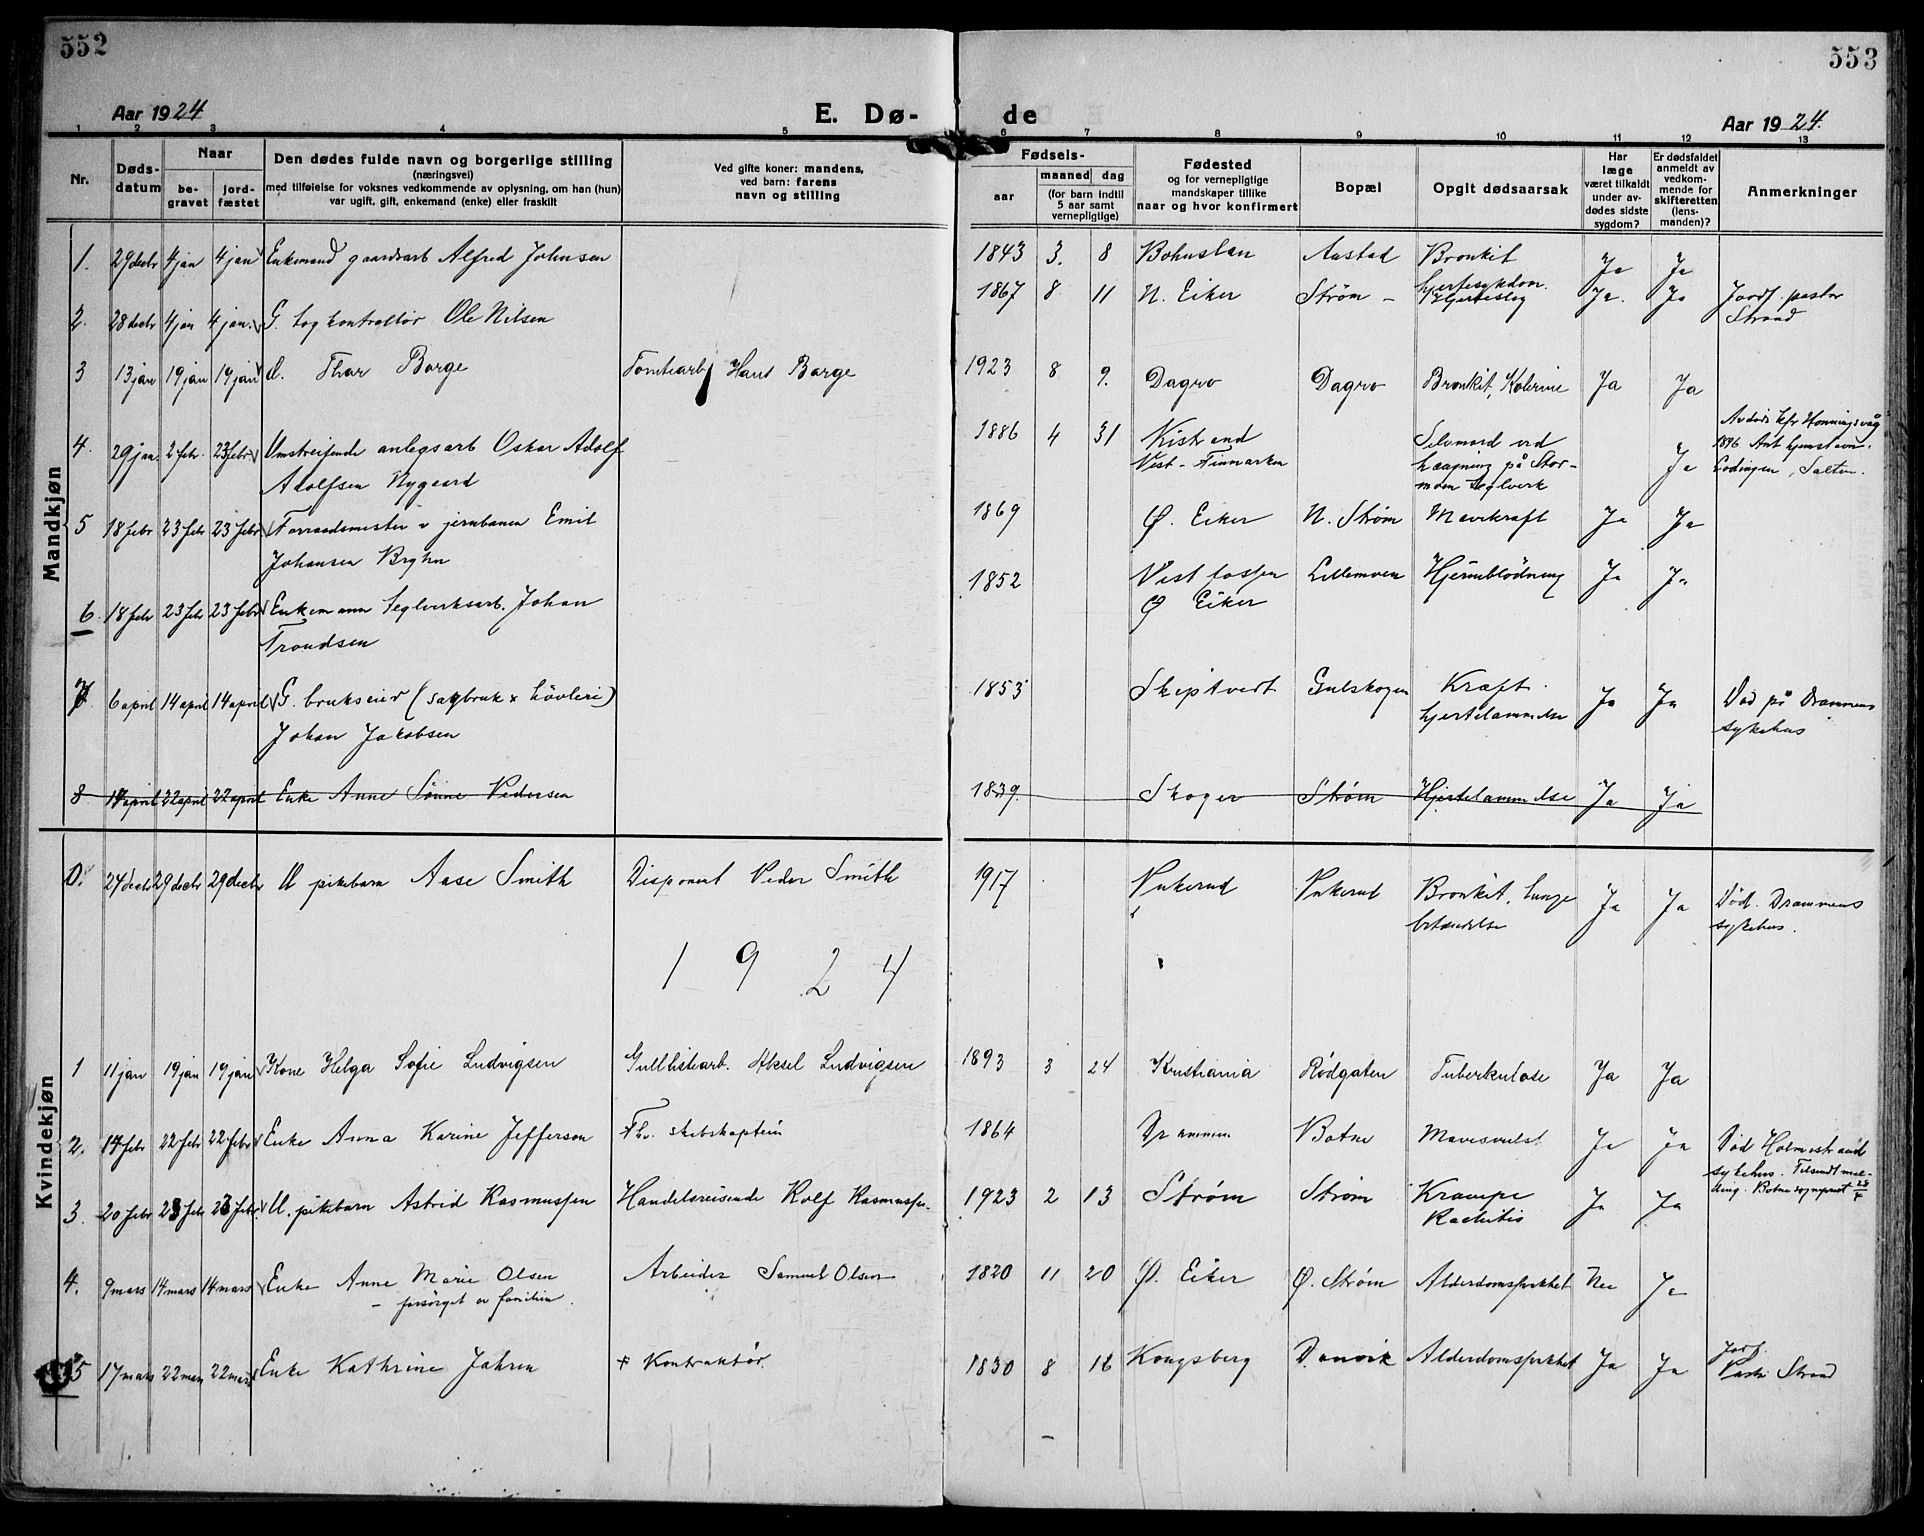 552
553
Aar 1924
E. Dø-
de
Aar 1924.
1 2 3 4 5 6 7 8 9 10 11 12 13
Nr.
Døds-
datum
Naar
be-
gravet
jord-
fæstet
Den dødes fulde navn og borgerlige stilling
(næringsvei)
med tilføielse for voksnes vedkommende av oplysning, om han (hun)
var ugift, gift, enkemand (enke) eller fraskilt
Ved gifte koner: mandens,
ved barn: farens
navn og stilling
Fødsels-
aar
maaned dag
(for barn indtil
5 aar samt
vernepligtige)
Fødested
og for vernepligtige
mandskaper tillike
naar og hvor konfirmert
Bopæl
Opgit dødsaarsak
Har
læge
været tilkaldt
under av-
dødes sidste
sygdom?
Er dødsfaldet
anmeldt av
vedkom-
mende for
skifteretten
(lens-
manden)?
Anmerkninger
Mandkjøn
1. 29 decbr 4 jan 4 jan Enkemand gaardsarb Alfred Johnsen 1843 3. 8 Bohuslan Austad Bronkit
hjertesykdom. Ja Ja
2. 28 decbr 4 jan 4 jan. G. togkontrollør Ole Nilsen 1867 8 11 N. Eiker Strøm – Hjerteslag Ja. Ja Jordf. pastor
Strand
3 13 jan 19 jan 19 jan d. Thor Borge Tomtearb Hans Borge 1923 8 9. Dagro Dagro Bronkit, Kolerine Ja Ja
4 29 jan. 2 febr. 23 febr Omstreifende anlegsarb Oskar Adolf
Adolfsen Nygaard 1886 4 31 Kistrand
Vest-Finmarken Selvmord ved
hængning på Stor-
moen Teglverk Ja Honningsvåg
1896 Ant hjemstavn.
Lødingen, Salten.
5 18 febr 23 febr 23 febr Forraadsmester v jernbanen Emil
Johansen Bryhn 1869 Ø. Eiker N. Strøm Mavekræft Ja Ja
6. 18 febr 23 febr 23 febr Enkemann Teglverksarb. Johan
Trondsen 1852 Vestfossen
Ø Eiker Lillemoen Hjerneblödning Ja Ja
7 6 april 14 april 14 april G. brukseier (sagbruk x hövleri)
Johan Jakobsen 1853 Skiptvedt Gulskogen Kræft.
hjertelammelse Ja Ja Död på Drammens
sykehus
8 april 22 april 22 april Enke Anne Sønne Pedersen 1839. Skoger Strøm Hjertelammelse Ja Ja
Kvindekjøn
0. 24 decbr 29 decbr 29 decbr U pikebarn Aase Smith Disponent Peder Smith 1917 Vukerud Vukerud Bronkit, lunge
betændelse Ja Ja Död. Drammens
sykehus.
1924
1 11 jan 19 jan 19 jan Kone Helga Sofie Ludvigsen Gulllistearb. Aksel Ludvigsen 1893 3 24 Kristiania Rödgaten Tuberkulose Ja Ja
2. 17 febr 22 febr 22 febr Enke Anna Karine Jefferson Fhv. skibskaptein 1864 Drammen Botne Mavesvulst Ja Ja Död Holmestrand
sykehus. Tilsendt mel-
ding. Botne sogneprest
3. 20 febr 23 febr 23 febr. U. pikebarn Astrid Rasmussen Handelsreisende Rolf Rasmussen. 1923 2 13 Strøm Strøm Krampe
Rachitis Ja Ja
4. 9 mars 14 mars 14 mars Enke Anne Marie Olsen
– forsörget av familien. Arbeider Samuel Olsen 1820 11 20 Ø. Eiker Ø. Strøm Alderdomssvækket Nei Ja
5 17 mars 22 mars 22 mars Enke Kathrine Jahren Kontraktör. 1830 8 16 Kongsberg Danvik Alderdomssvækket Ja Ja Jordf.
Pastor Strand